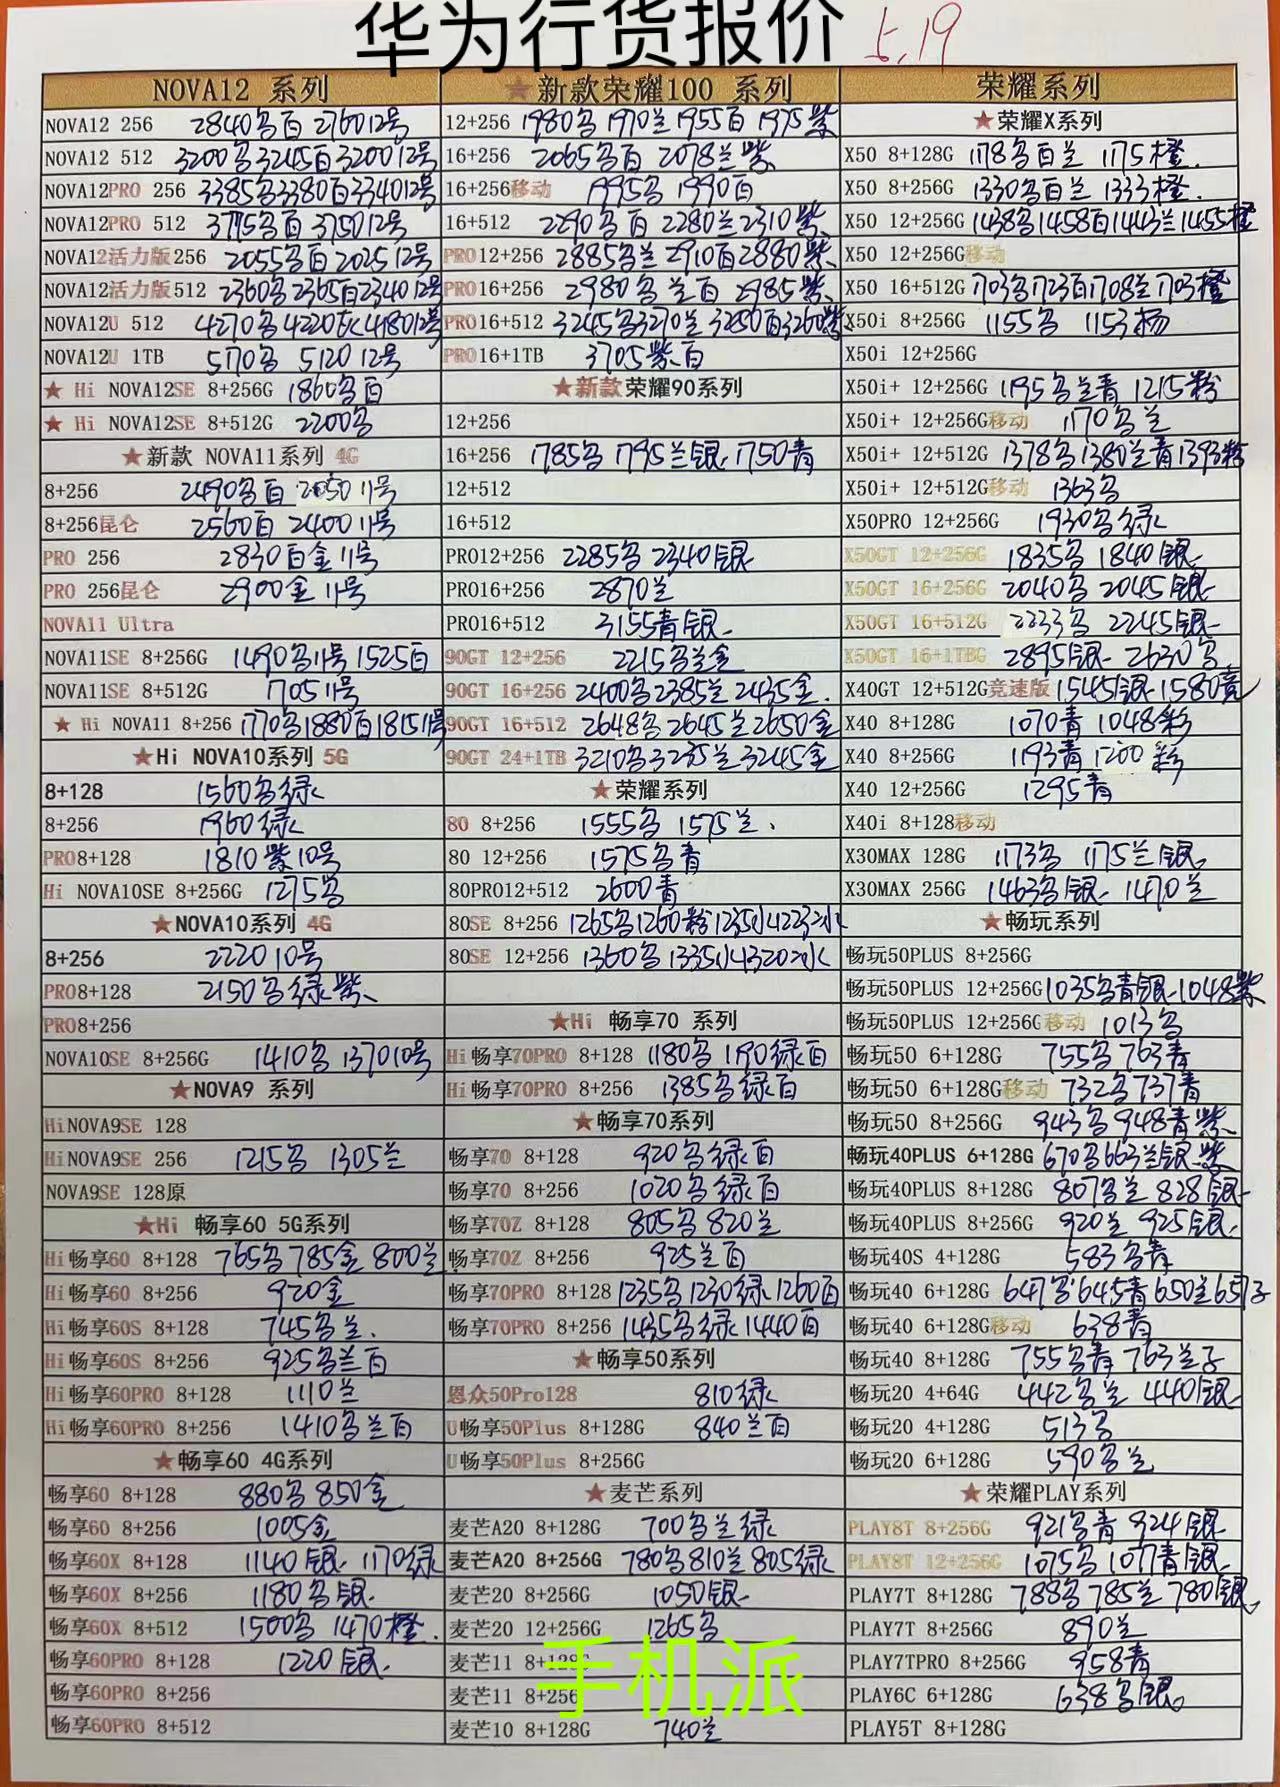 华为行货报价 5.19
NOVA12 系列
NOVA12 256 2840名百 2760 12号
NOVA12 512 3200名3245百3200 12号
NOVA12PRO 256 3385名3380百3340 12号
NOVA12PRO 512 3715名百 3750 12号
NOVA12活力版256 2055名百 2025 12号
NOVA12活力版512 2360名2365百2340 12号
NOVA12U 512 4270名4220灰4180 12号
NOVA12U 1TB 5170名 5120 12号
★ Hi NOVA12SE 8+256G 1860名百
★ Hi NOVA12SE 8+512G 2200名
★新款 NOVA11系列 4G
8+256 2490名百 2050 11号
8+256昆仑 2560百 2400 11号
PRO 256 2830百金11号
PRO 256昆仑 2900金 11号
NOVA11 Ultra
NOVA11SE 8+256G 1490名11号 1525百
NOVA11SE 8+512G 1705 11号
★ Hi NOVA11 8+256 1770名1880百1815 11号
★Hi NOVA10系列 5G
8+128 1560名绿
8+256 1960绿
PRO8+128 1810紫10号
Hi NOVA10SE 8+256G 1275名
★NOVA10系列 4G
8+256 2220 10号
PRO8+128 2150名绿紫
PRO8+256
NOVA10SE 8+256G 1410名 1370 10号
★NOVA9 系列
HiNOVA9SE 128
HiNOVA9SE 256 1215名 1305兰
NOVA9SE 128原
★Hi 畅享60 5G系列
Hi畅享60 8+128 765名785金 800兰
Hi畅享60 8+256 920金
Hi畅享60S 8+128 745名兰.
Hi畅享60S 8+256 925名兰百
Hi畅享60PRO 8+128 1110兰
Hi畅享60PRO 8+256 1410名兰百
★畅享60 4G系列
畅享60 8+128 880名 850金
畅享60 8+256 1005金
畅享60X 8+128 1140银 1170绿
畅享60X 8+256 1180名银
畅享60X 8+512 1500名 1470橙.
畅享60PRO 8+128 1220银.
畅享60PRO 8+256
畅享60PRO 8+512
★新款荣耀100 系列
12+256 1980名1970兰1955百1975紫
16+256 2065名百 2078兰紫
16+256移动 1995名 1990百
16+512 2290名百 2280兰2310紫
PRO12+256 2885名兰2910百2880紫
PRO16+256 2980名兰百 2985紫
PRO16+512 3245名3270兰3250百3260紫
PRO16+1TB 3705紫百
★新款荣耀90系列
12+256
16+256 1785名1795兰银1750青
12+512
16+512
PRO12+256 2285名2340银
PRO16+256 2870兰
PRO16+512 3155青银
90GT 12+256 2215名兰金
90GT 16+256 2400名2385兰2435金.
90GT 16+512 2648名2645兰2650金
90GT 24+1TB 3210名3235兰3245金
★荣耀系列
80 8+256 1555名 1575兰.
80 12+256 1575名青
80PRO12+512 2600青
80SE 8+256 1265名1260粉1235
80SE 12+256 1360名1335
★Hi 畅享70 系列
Hi畅享70PRO 8+128 1180名 1190绿百
Hi畅享70PRO 8+256 1385名绿百
★畅享70系列
畅享70 8+128 920名绿百
畅享70 8+256 1020名绿百
畅享70Z 8+128 805名820兰
畅享70Z 8+256 925兰百
畅享70PRO 8+128 1235名1230绿1260百
畅享70PRO 8+256 1435名绿1440百
★畅享50系列
恩众50Pro128 810绿
U畅享50Plus 8+128G 840兰百
U畅享50Plus 8+256G
★麦芒系列
麦芒A20 8+128G 700名兰绿
麦芒A20 8+256G 780名810兰805绿
麦芒20 8+256G 1050银
麦芒20 12+256G 1265名
麦芒11 8+128G
麦芒11 8+256
麦芒10 8+128G 740兰
手机派
荣耀系列
★荣耀X系列
X50 8+128G 1178名百兰 1175橙.
X50 8+256G 1330名百兰 1333橙.
X50 12+256G 1438名1458百1443兰1455橙
X50 12+256G移动
X50 16+512G 1703名1723百1708兰1703橙
X50i 8+256G 1155名 1153
X50i 12+256G
X50i+ 12+256G 1195名兰青 1215粉
X50i+ 12+256G移动 1170名兰
X50i+ 12+512G 1378名1380兰青1393粉
X50i+ 12+512G移动 1363名
X50PRO 12+256G 1930名绿
X50GT 12+256G 1835名 1840银
X50GT 16+256G 2040名 2045银
X50GT 16+512G 2233名 2245银
X50GT 16+1TBG 2895银 2630名
X40GT 12+512G竞速版 1545银1580竞
X40 8+128G 1070青 1048彩
X40 8+256G 1193青 1200彩
X40 12+256G 1295青
X40i 8+128移动
X30MAX 128G 1173名 1175兰银
X30MAX 256G 1463名银 1470兰
★畅玩系列
畅玩50PLUS 8+256G
畅玩50PLUS 12+256G 1035名青银1048紫
畅玩50PLUS 12+256G移动 1013名
畅玩50 6+128G 755名763青
畅玩50 6+128G移动 732名737青
畅玩50 8+256G 943名948青紫
畅玩40PLUS 6+128G 670名663兰银紫
畅玩40PLUS 8+128G 807名兰 828银
畅玩40PLUS 8+256G 920兰 925银
畅玩40S 4+128G 583名青
畅玩40 6+128G 647名645青650兰657子
畅玩40 6+128G移动 638青
畅玩40 8+128G 755名青 763兰子
畅玩20 4+64G 442名兰 440银
畅玩20 4+128G 513名
畅玩20 6+128G 590名兰
★荣耀PLAY系列
PLAY8T 8+256G 921名青 924银
PLAY8T 12+256G 1075名1077青银
PLAY7T 8+128G 788名785兰780银
PLAY7T 8+256G 890兰
PLAY7TPRO 8+256G 958青
PLAY6C 6+128G 638名银
PLAY5T 8+128G